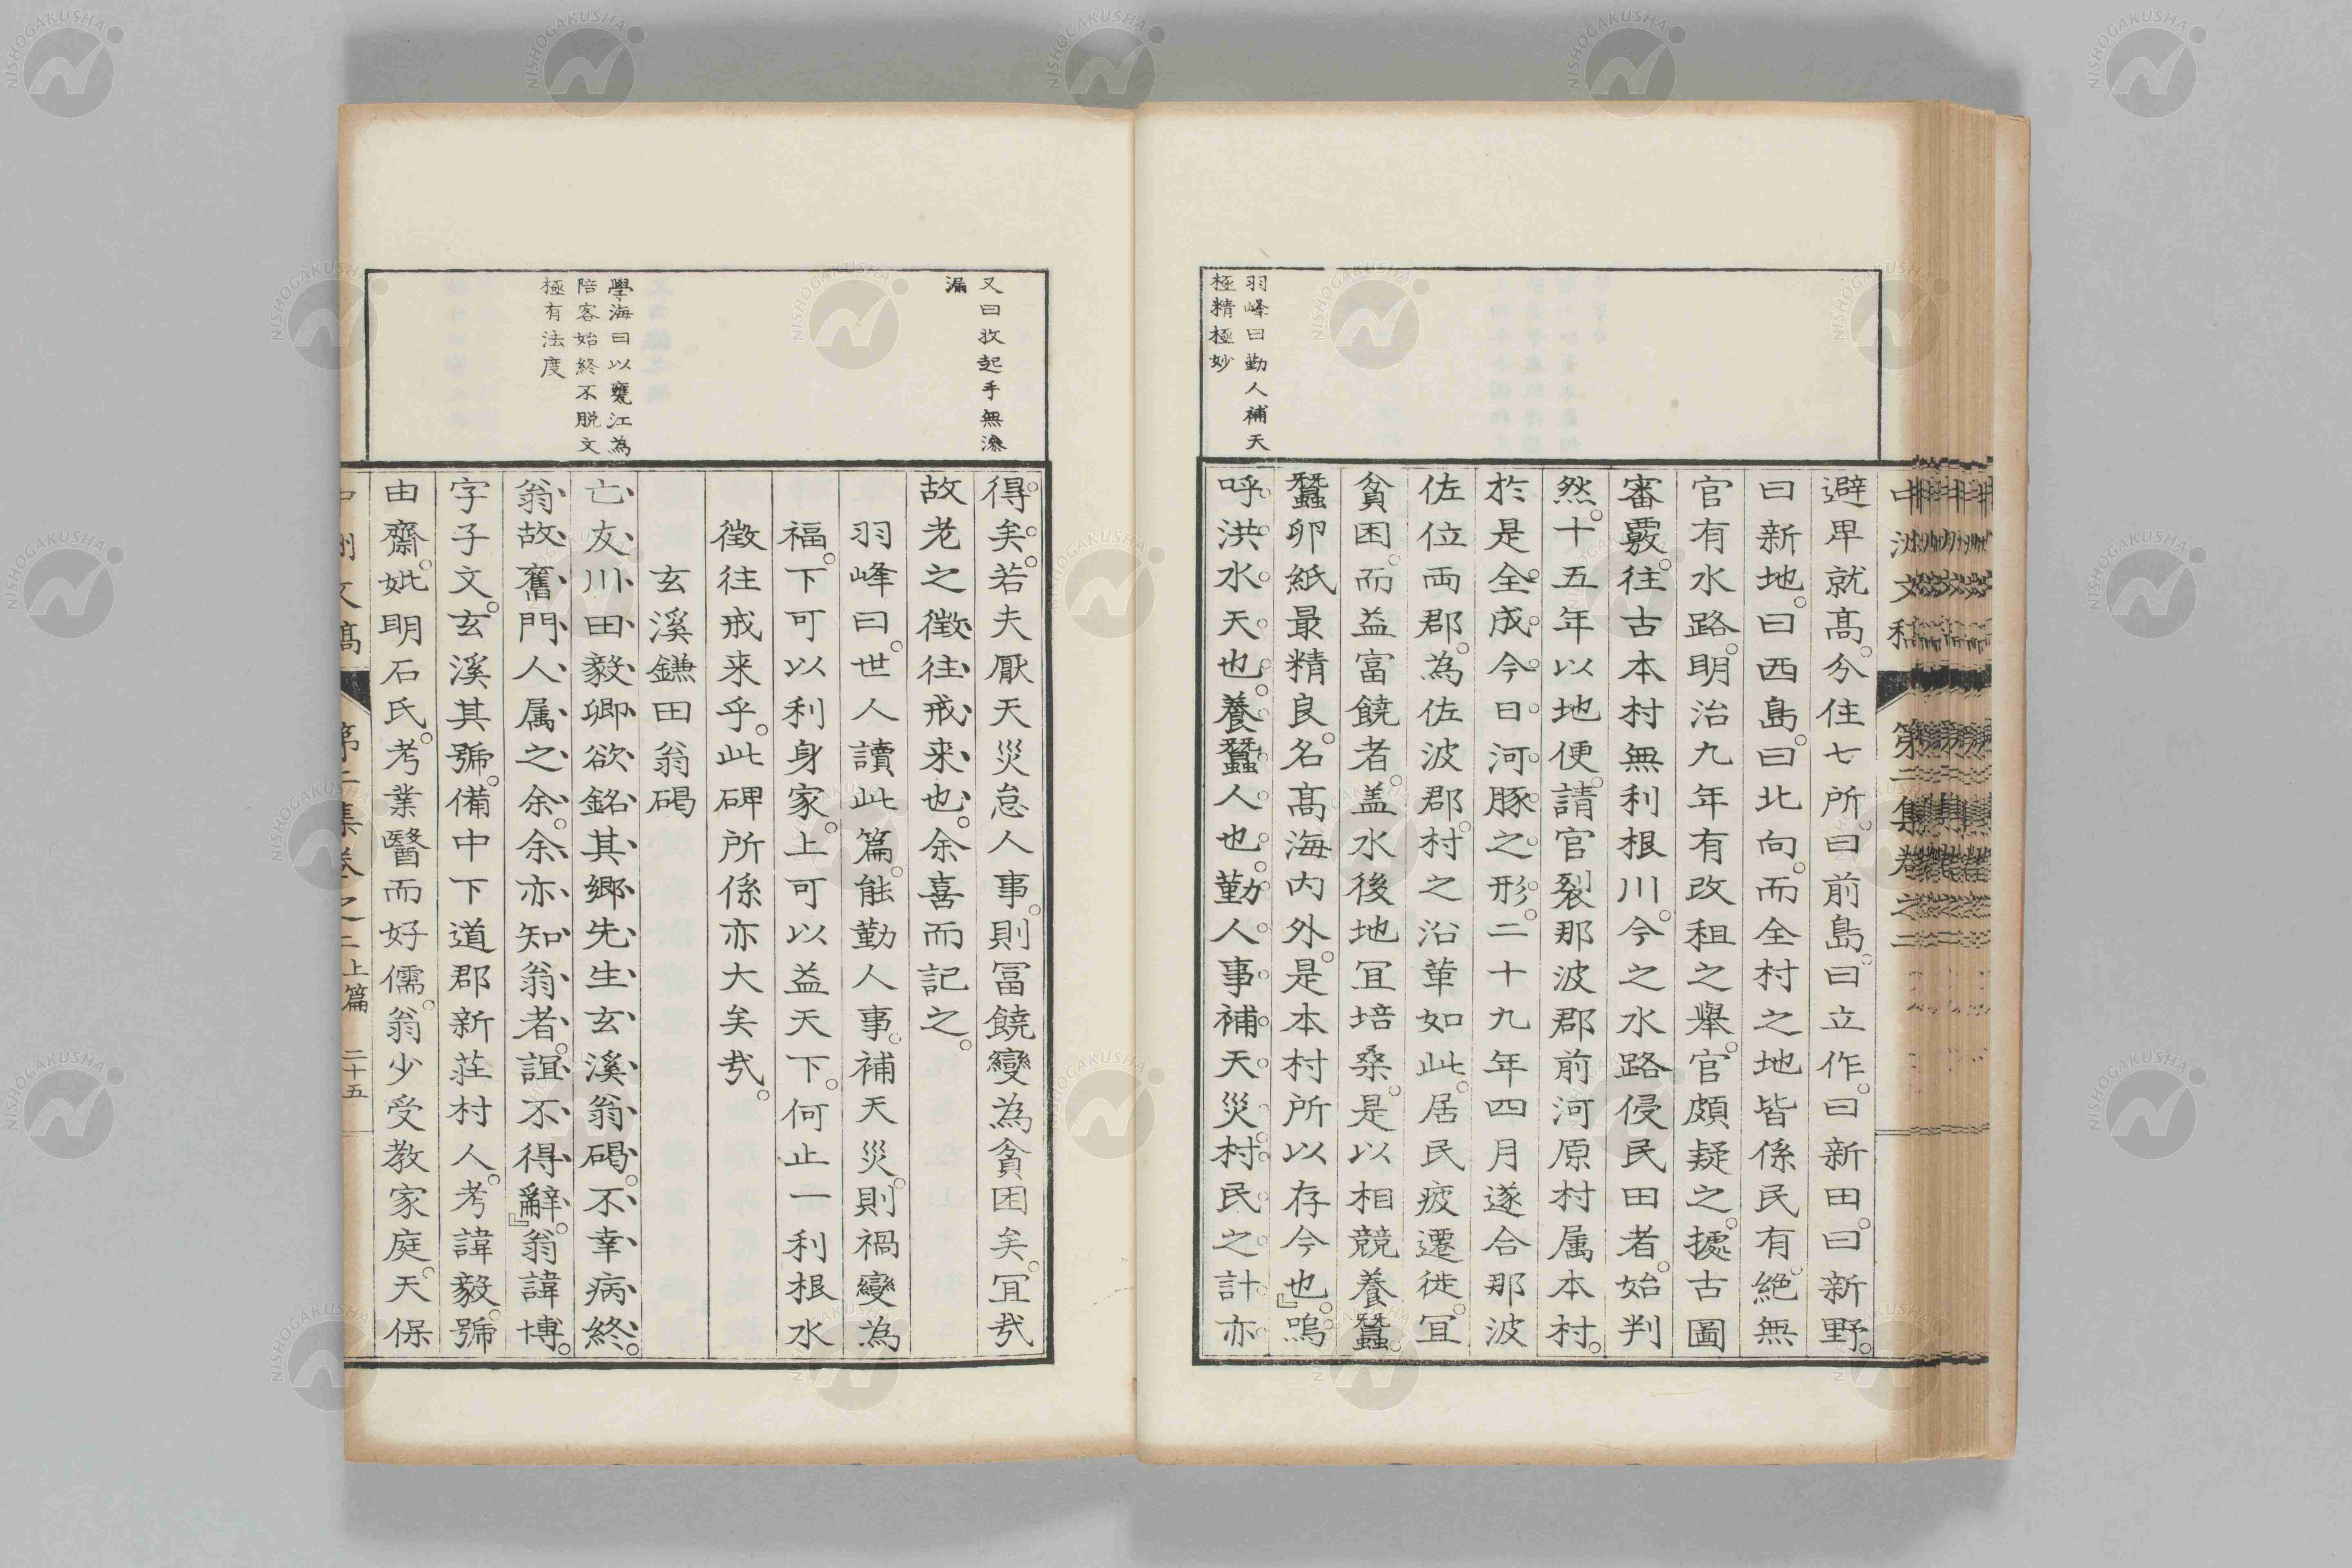 中洲文稿 第二集卷之二
避卑就髙。分住七所。曰前島。曰立作。曰新田。曰新野。
曰新地。曰西島。曰北向。而全村之地皆係民有。絶無
官有水路。明治九年有改租之舉。官頗疑之。據古圖
審覈。往古本村無利根川。今之水路侵民田者。始判
然。十五年以地便。請官裂那波郡前河原村属本村。
於是全成今日河豚之形。二十九年四月遂合那波
佐位両郡。為佐波郡。村之沿革如此。居民疲遷徙。冝
貧困。而益富饒者。盖水後地冝培桑。是以相競養蠶。
蠶卵紙最精良。名髙海内外。是本村所以存今也。』嗚
呼。洪水天也。養蠶人也。勤人事補天災。村民之計亦
羽峰曰勤人補天
極精極妙
得矣。若夫厭天災怠人事。則冨饒變為貧困矣。冝㢤
故老之徴往戒来也。余喜而記之。
羽峰曰。世人讀此篇。能勤人事。補天災。則禍變為
福。下可以利身家。上可以益天下。何止一利根水
徴往戒来乎。此碑所係亦大矣㢤。
玄溪鎌田翁碣
亡友川田毅卿欲銘其郷先生玄溪翁碣。不幸病終。
翁故舊門人属之余。余亦知翁者。誼不得辭。』翁諱博。
字子文。玄溪其號。備中下道郡新莊村人。考諱毅。號
由齋。妣明石氏。考業醫而好儒。翁少受教家庭。天保
又曰收起手無滲
漏
學海曰以甕江為
陪客始終不脱文
極有法度
中洲文稿 第二集卷之二上篇 二十五
NISHOGAKUSHA